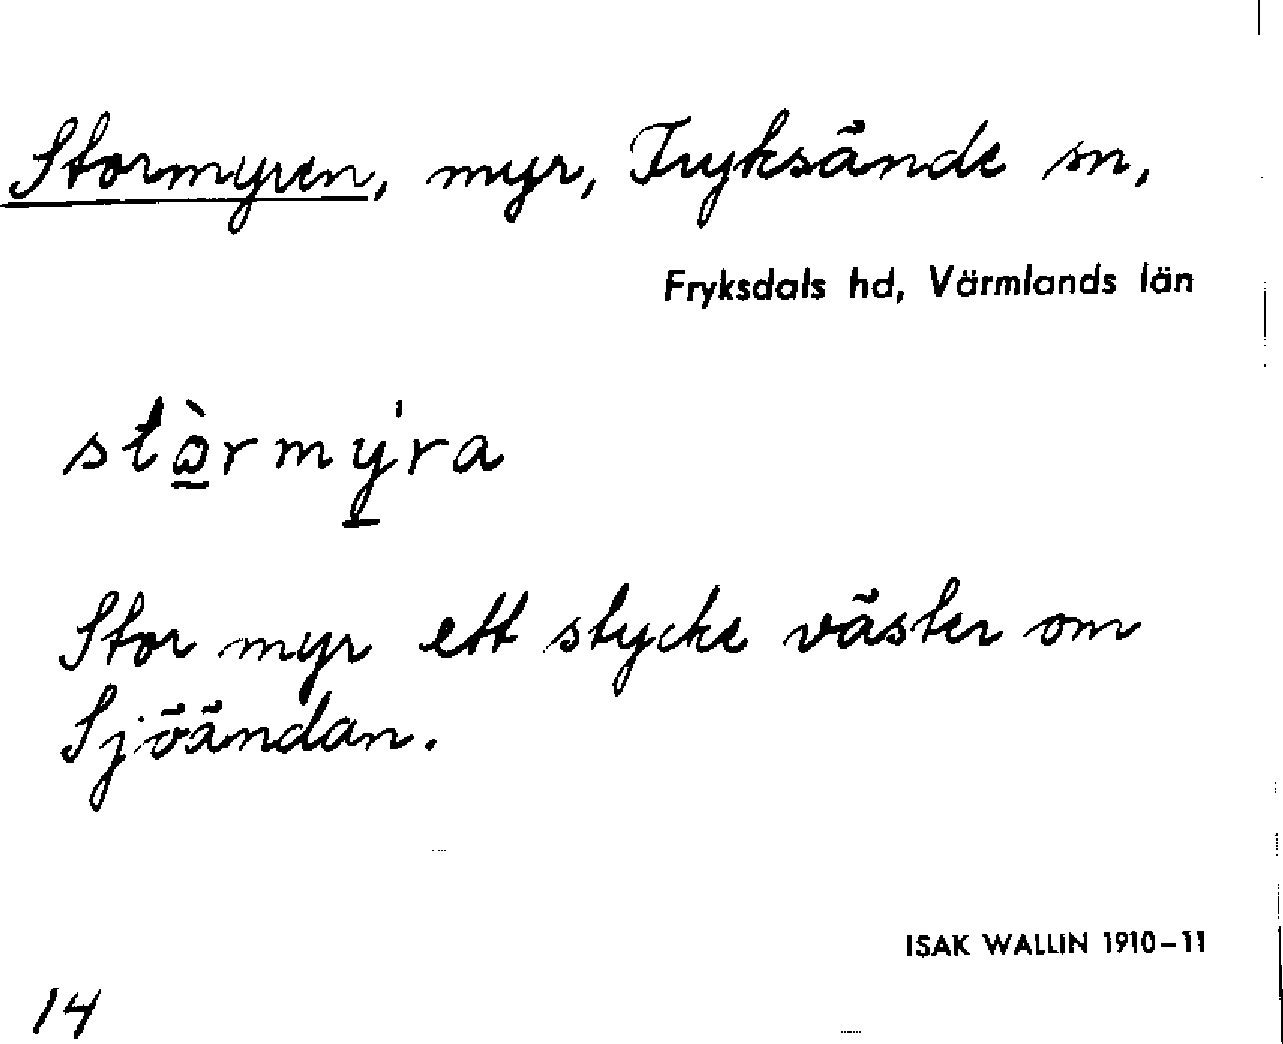 Stormyren, myr, Fryksände sn,
Fryksdals hd, Värmlands län
stòrmy'ra
Stor myr ett stycke väster om
Sjöändan.
ISAK WALLIN 1910-11
14